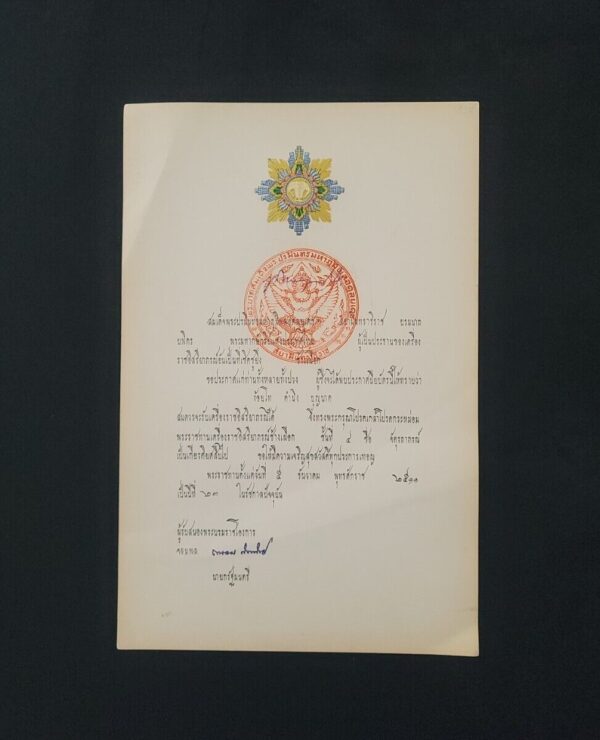 สมเด็จพระปรมินทรมหาภูมิพลอดุลยเดช สยามินทราธิราช บรมนาถ
บพิตร พระมหากษัตริย์แห่งประเทศไทย ผู้เป็นประธานของเครื่อง
ราชอิสริยาภรณ์อันเป็นที่เชิดชูยิ่ง ช้างเผือก
ขอประกาศแก่ท่านทั้งหลายทั้งปวง ผู้ซึ่งจะได้พบประกาศนียบัตรนี้ให้ทราบว่า
ร้อยโท คำปิง บุญนาค
สมควรจะรับเครื่องราชอิสริยาภรณ์ได้ จึ่งทรงพระกรุณาโปรดเกล้าโปรดกระหม่อม
พระราชทานเครื่องราชอิสริยาภรณ์ช้างเผือก ชั้นที่ ๔ ชื่อ จัตุรถาภรณ์
เป็นเกียรติยศสืบไป ขอให้มีความเจริญสุขสวัสดิ์ทุกประการเทอญ
พระราชทานตั้งแต่วันที่ ๕ ธันวาคม พุทธศักราช ๒๕๑๑
เป็นปีที่ ๒๓ ในรัชกาลปัจจุบัน
ผู้รับสนองพระบรมราชโองการ
จอมพล
นายกรัฐมนตรี